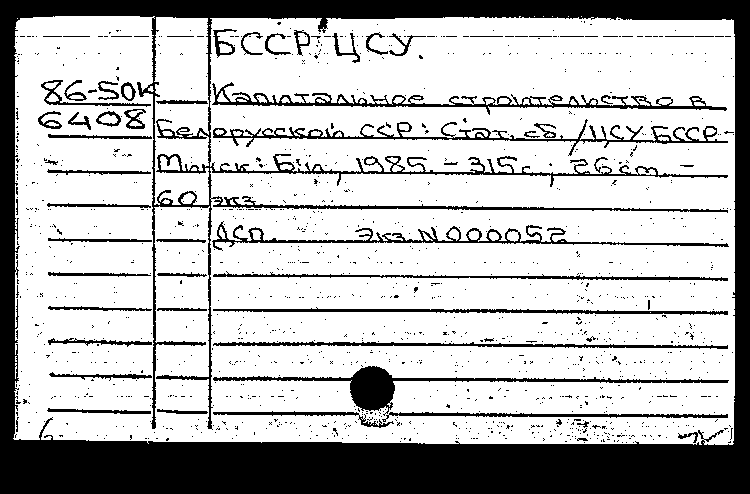 БССР. ЦСУ.
86-50К
6408
Капитальное строительство в
Белорусской ССР: Стат. сб. / ЦСУ БССР. -
Минск: Б.и., 1985. - 315 с.; 26 cm. -
60 экз.
ДСП. Экз. N 000052